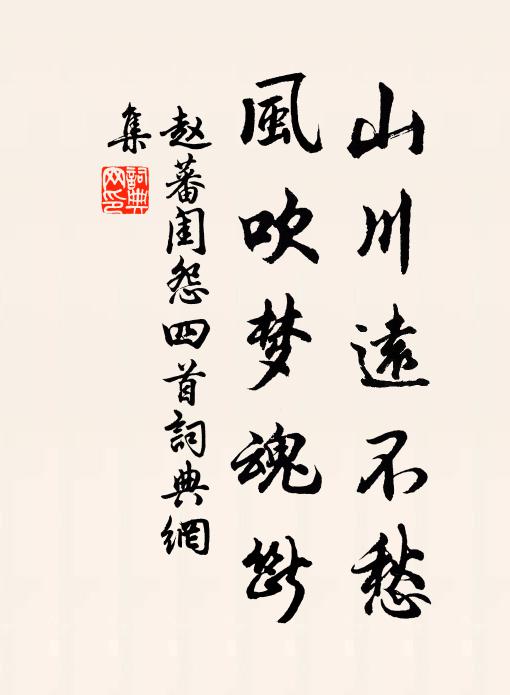 山川遠不愁
風吹梦魂斷
赵蕃閨怨四首詞典網
集
詞典
网印